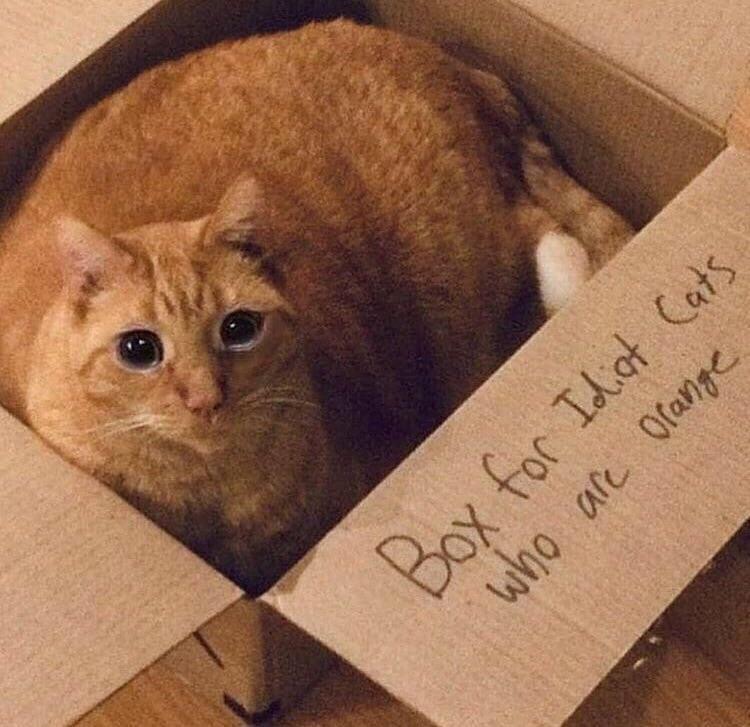 Box for Idiot Cats
who are Orange